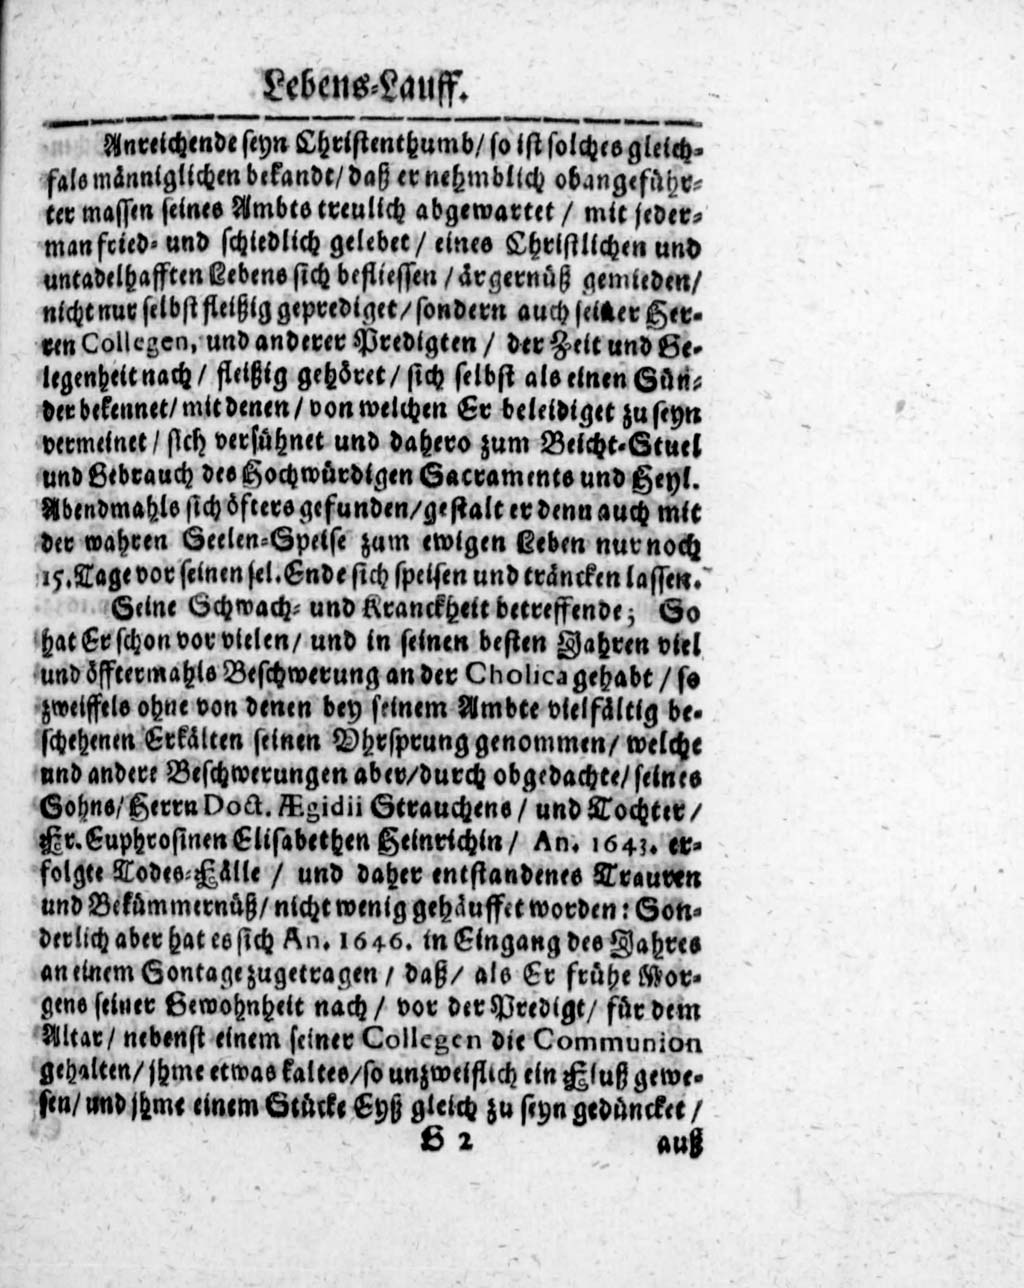 Lebens-Lauff.
Anreichende seyn Christenthumb/ so ist solches gleich-
fals männiglichen bekandt/ daß er nehmblich obangeführ-
ter massen seines Ambts treulich abgewartet / mit jeder-
man fried- und schiedlich gelebet / eines Christlichen und
untadelhafften Lebens sich befliessen / ärgernüß gemieden/
nicht nur selbst fleißig geprediget/ sondern auch seiner Her-
ren Collegen, und anderer Predigten / der Zeit und Ge-
legenheit nach / fleißig gehöret / sich selbst als einen Sün-
der bekennet/ mit denen / von welchen Er beleidiget zu seyn
vermeinet / sich versühnet und dahero zum Beicht-Stuel
und Gebrauch des Hochwürdigen Sacraments und Heyl.
Abendmahls sich öfters gefunden/ gestalt er denn auch mit
der wahren Seelen-Speise zum ewigen Leben nur noch
15. Tage vor seinen sel. Ende sich speisen und träncken lassen.
Seine Schwach- und Kranckheit betreffende; So
hat Er schon vor vielen/ und in seinen besten Jahren viel
und öfftermahls Beschwerung an der Cholica gehabt / so
zweiffels ohne von denen bey seinem Ambte vielfältig be-
schehenen Erkälten seinen Vhrsprung genommen/ welche
und andere Beschwerungen aber/ durch obgedachte/ seines
Sohns/ Herrn Doct. Ægidii Strauchens / und Tochter /
Fr. Euphrosinen Elisabethen Heinrichin / An. 1643. er-
folgte Todes-Fälle / und daher entstandenes Trauren
und Bekümmernüß/ nicht wenig gehäuffet worden: Son-
derlich aber hat es sich An. 1646. in Eingang des Jahres
an einem Sontage zugetragen / daß/ als Er frühe Mor-
gens seiner Gewohnheit nach / vor der Predigt/ für dem
Altar / nebenst einem seiner Collegen die Communion
gehalten/ jhme etwas kaltes/ so unzweiflich ein Fluß gewe-
sen/ und jhme einem Stücke Eyß gleich zu seyn gedüncket /
G 2 auß